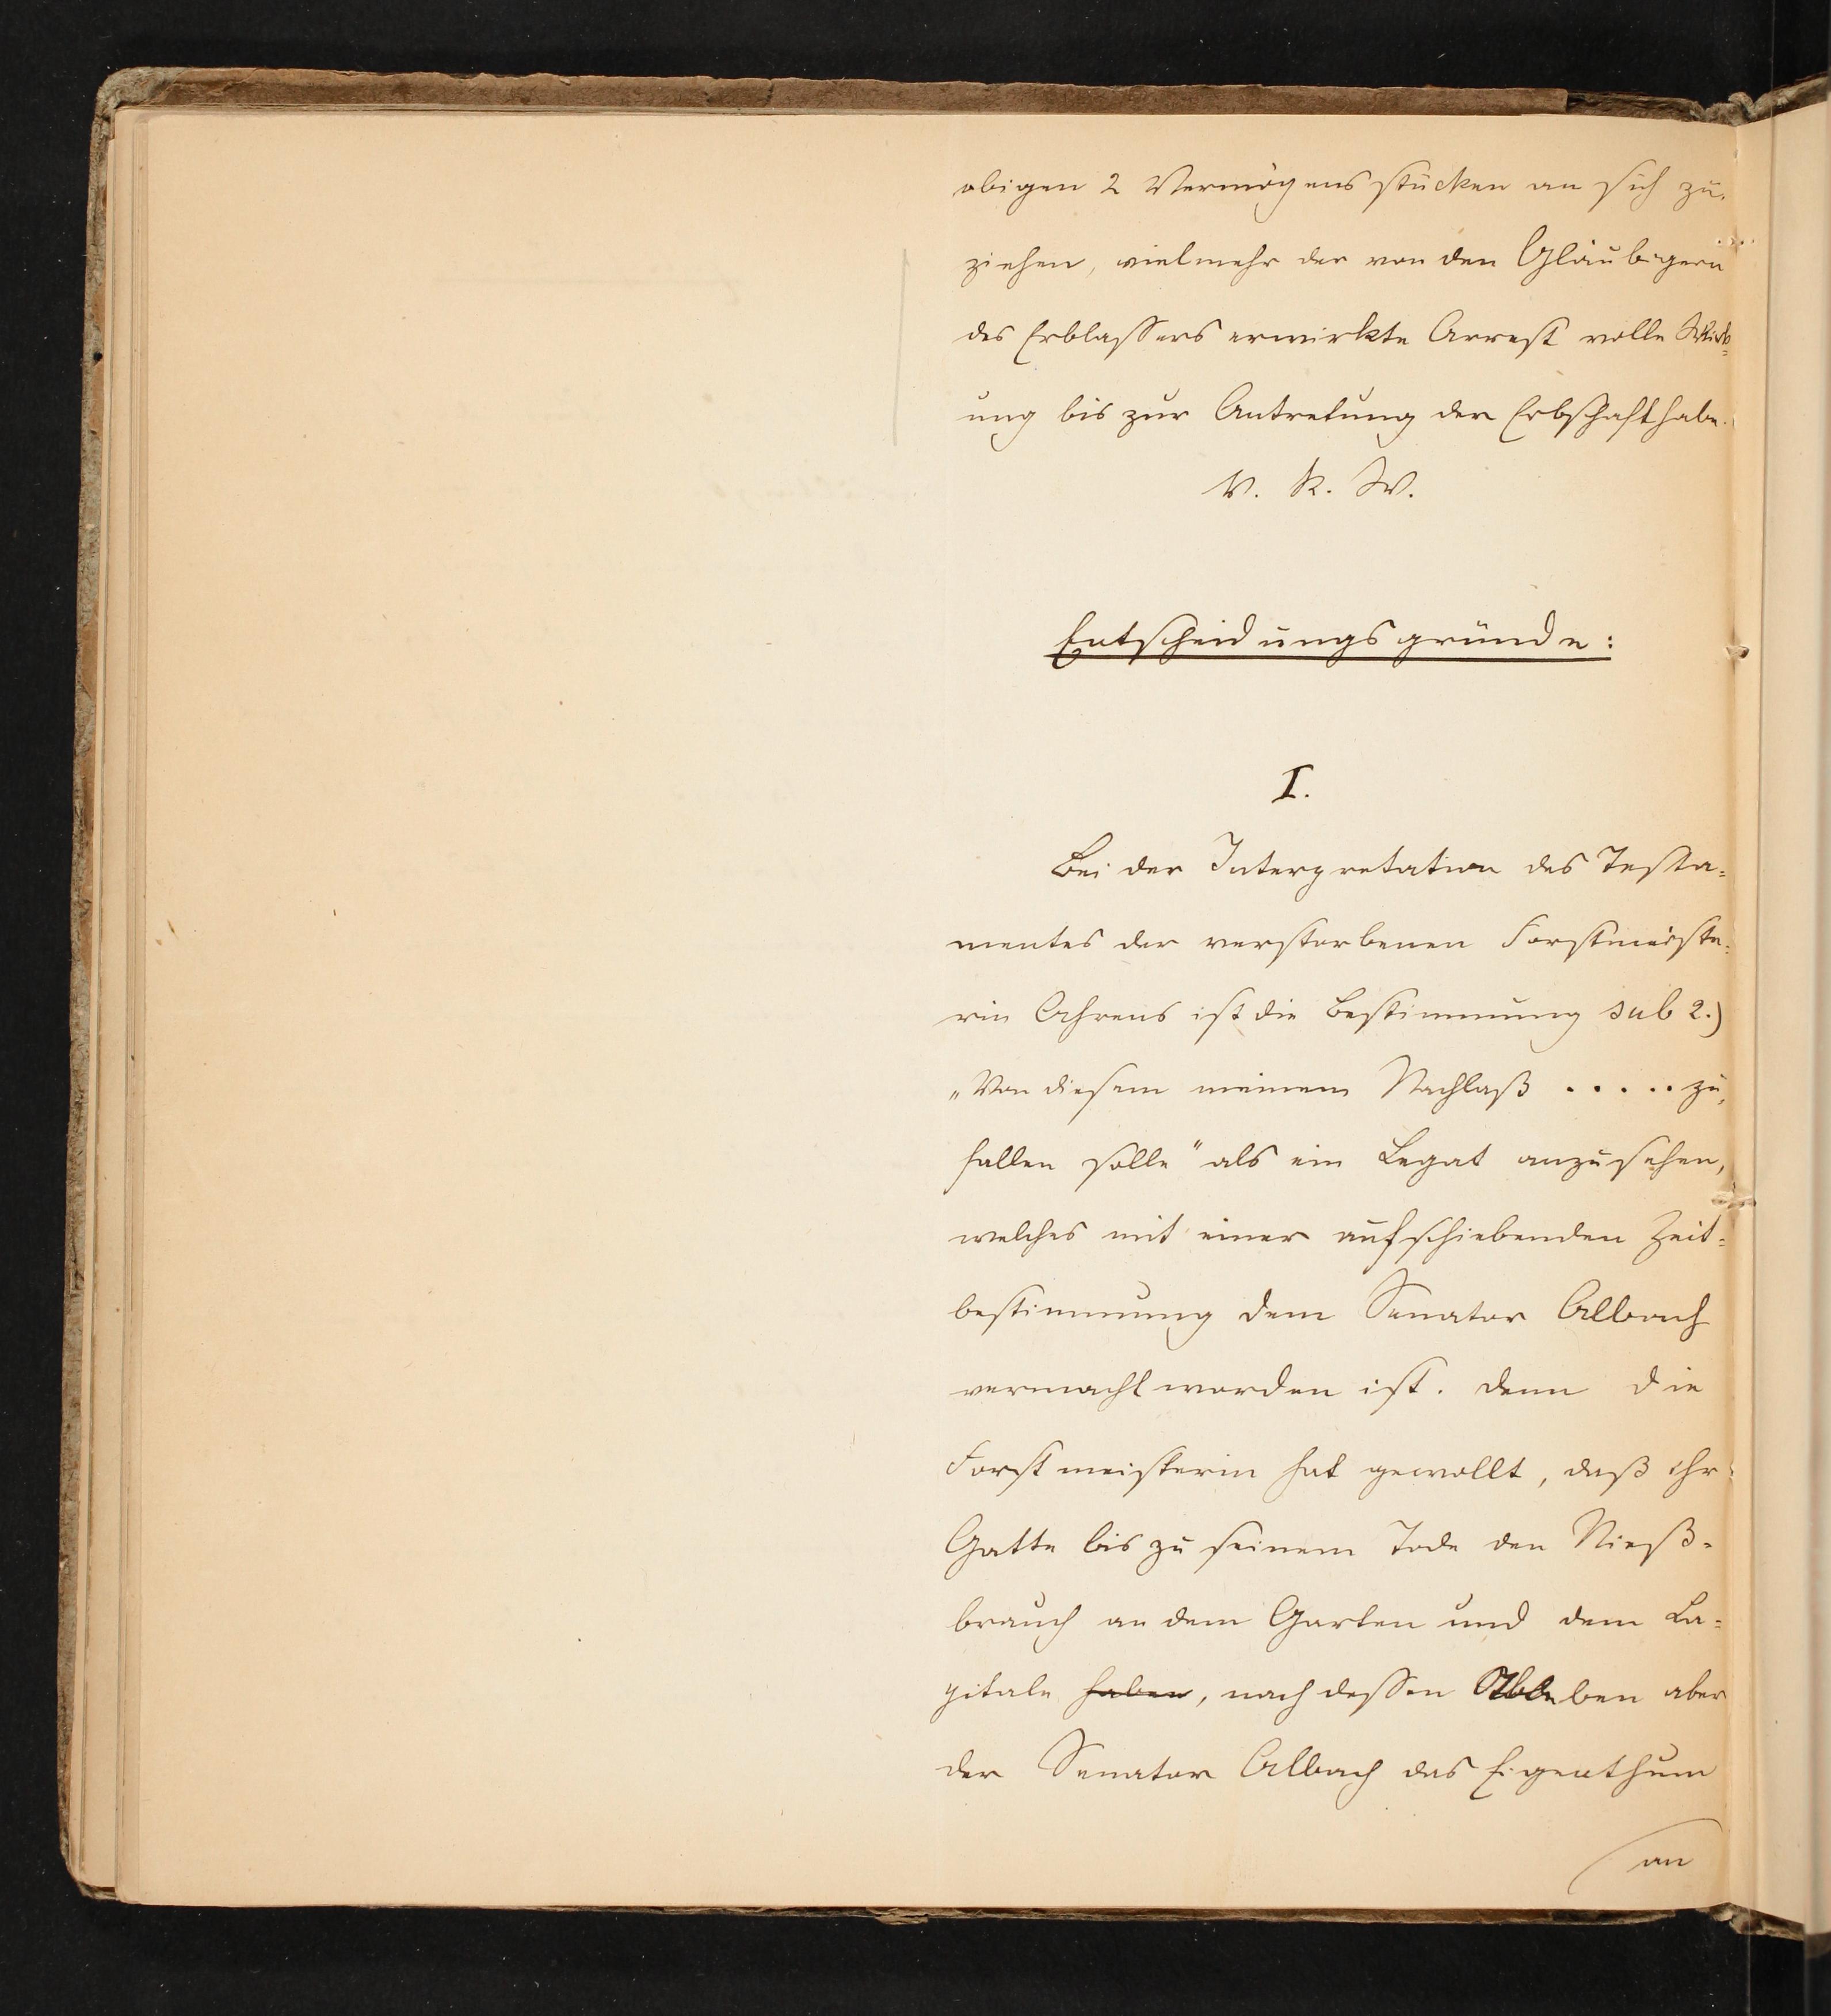 obigen 2 Vermögensstücken an sich zu-
ziehen, vielmehr der von den Gläubigern
des Erblassers erwirkte Arrest volle Wirk=
ung bis zur Antretung der Erbschaft habe.
V. R. W.
Entscheidungsgründe:
I.
Bei der Interpretation des Testa=
mentes der verstorbenen Forstmeiste=
rin Ahrens ist die Bestimmung sub 2.)
"Von diesem meinem Nachlaß ..... zu-
fallen solle" als ein Legat anzusehen,
welches mit einer aufschiebenden Zeit=
bestimmung dem Senator Albach
vermacht worden ist. Denn die
Forstmeisterin hat gewollt, daß ihr
Gatte bis zu seinem Tode den Nieß-
brauch an dem Garten und dem Ca=
pitale haben, nach dessen Ableben aber
der Senator Albach das Eigenthum
an